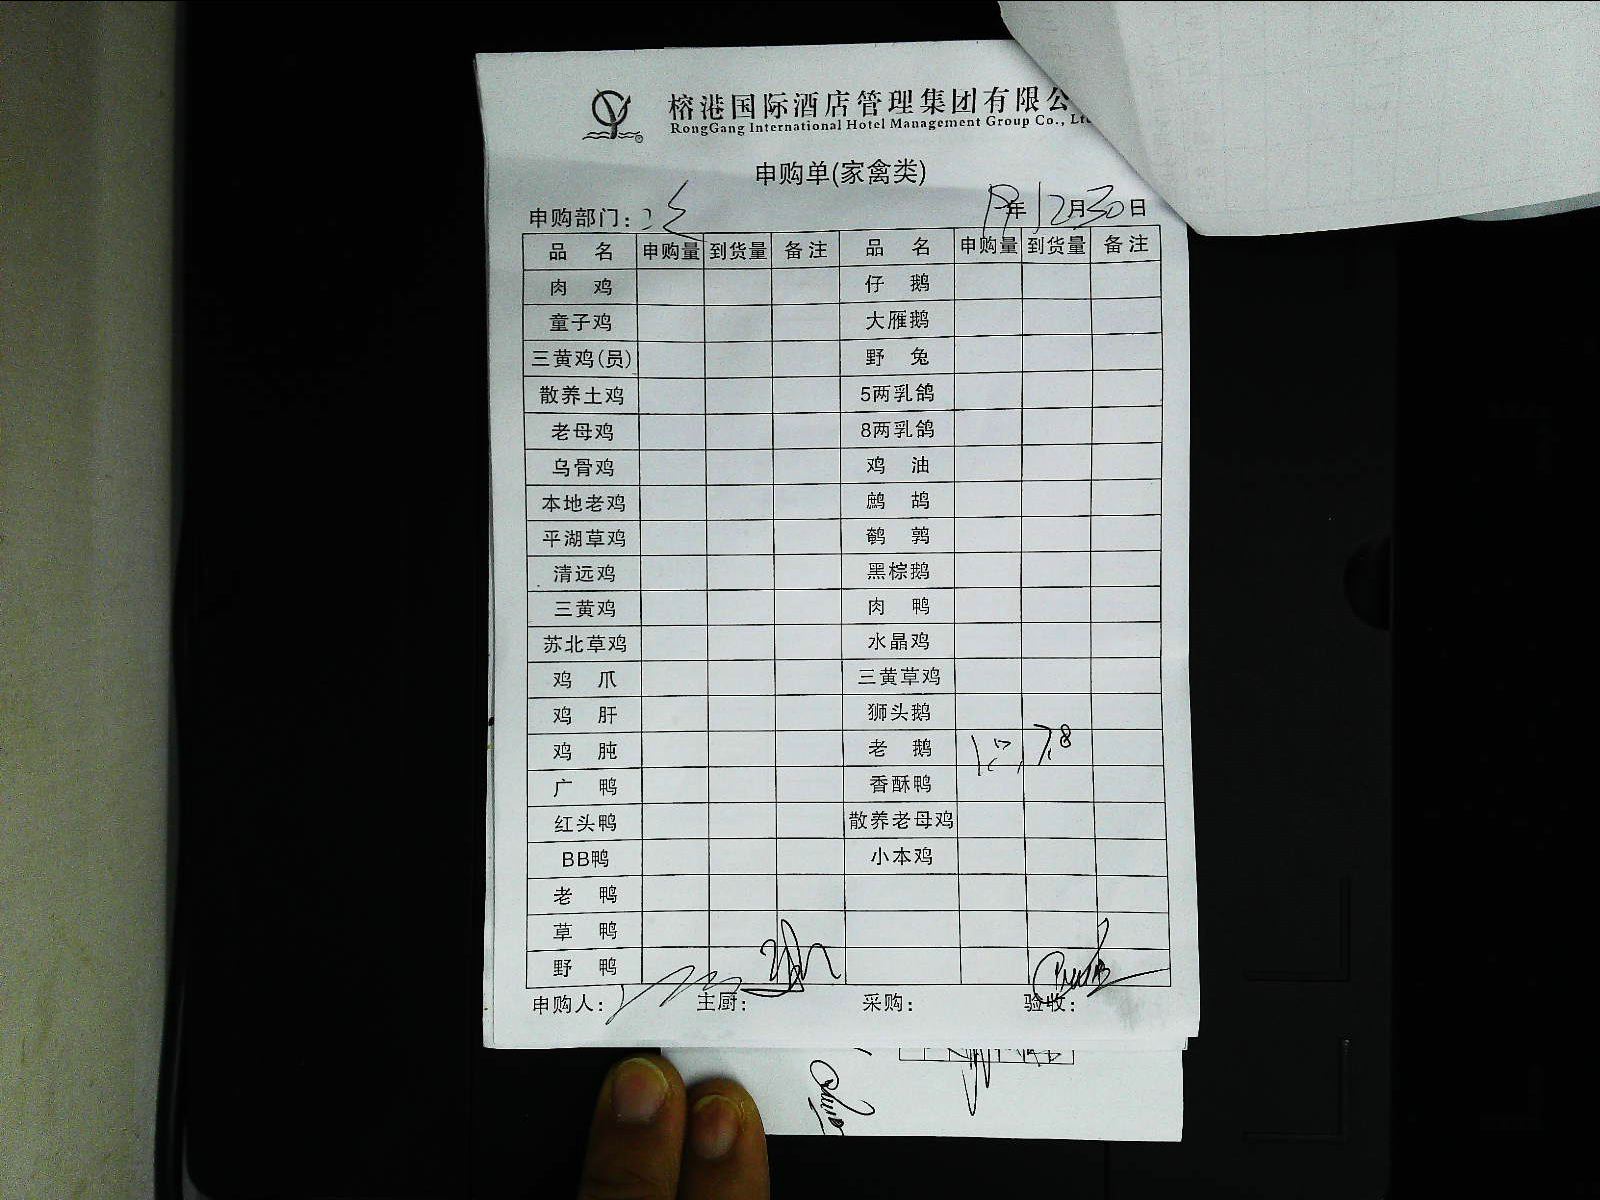 榕港国际酒店管理集团有限公
RongGang International Hotel Management Group Co., Ltd
申购单(家禽类)
申购部门: 19年12月30日
品 名 申购量 到货量 备注 品 名 申购量 到货量 备注
肉 鸡 仔 鹅
童子鸡 大雁鹅
三黄鸡(员) 野 兔
散养土鸡 5两乳鸽
老母鸡 8两乳鸽
乌骨鸡 鸡 油
本地老鸡 鹧 鸪
平湖草鸡 鹌 鹑
清远鸡 黑棕鹅
三黄鸡 肉 鸭
苏北草鸡 水晶鸡
鸡 爪 三黄草鸡
鸡 肝 狮头鹅
鸡 肫 老 鹅 7.8
广 鸭 香酥鸭
红头鸭 散养老母鸡
BB鸭 小本鸡
老 鸭
草 鸭
野 鸭
申购人: 主厨: 采购: 验收: